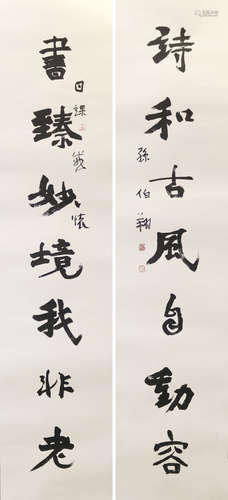 詩和古風自動容
孫伯翔
書臻妙境我非老
日課